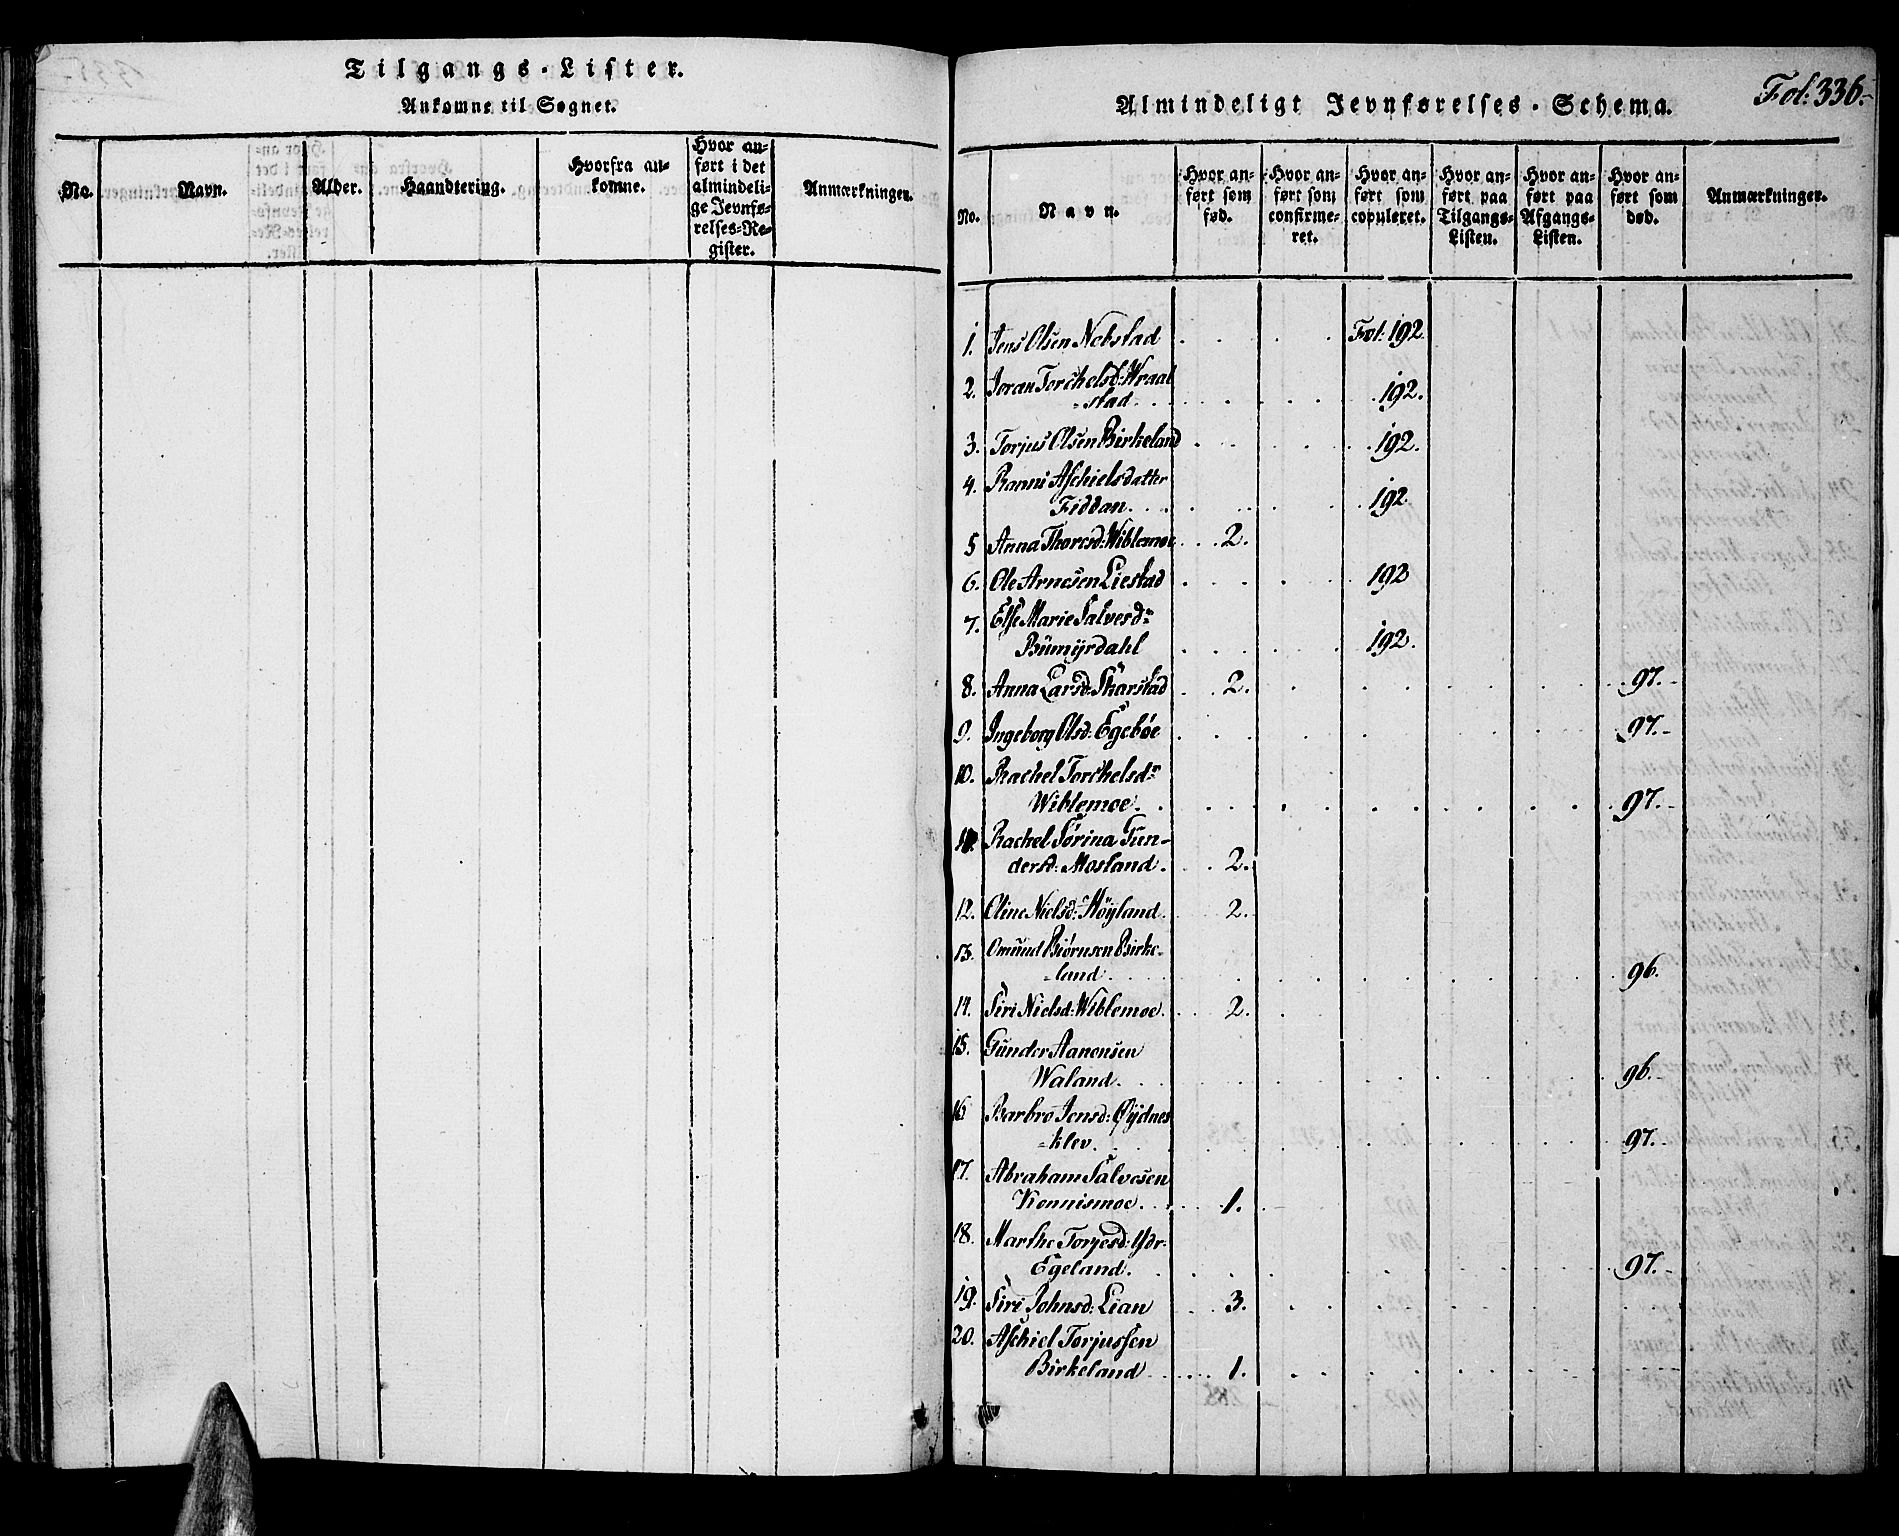 Tilgangs-Lister.
Ankomne til Sognet.
No.
Navn.
Alder.
Haandtering.
Hvorfra an-
komne.
Hvor an-
ført i det
almindeli-
ge Jevnfø-
relses-Re-
gister.
Anmærkninger.
Fol: 336.-
Almindeligt Jevnførelses-Schema.
No.
Navn.
Hvor an-
ført som
fød.
Hvor an-
ført som
confirme-
ret.
Hvor an-
ført som
copuleret.
Hvor an-
ført paa
Tilgangs-
Listen.
Hvor an-
ført paa
Afgangs-
Listen.
Hvor an-
ført som
død.
Anmærkninger.
1. Jens Olsen Nebstad . . . Fol: 192
2. Joran Torchelsd: Wraal
-stad. . . . 192.
3. Torjus Olsen Birkeland . . . 192.
4. Ranni Aschielsdatter
Fiddan. . . . 192.
5 Anna Thoresd: Wiblemoe . . 2.
6. Ole Arnesen Liestad . . . 192
7. Else Marie Salvesdr
Bümÿrdahl . . . 192.
8. Anna Larsd: Skarstad . . 2. . . . 97.-
9. Ingeborg Olsd: Egebøe . . . 97.-
10. Rachel Torchelsdr
Wiblemoe. . . . 97.-
11. Rachel Sørina Gün-
dersd: Mosland. . . 2.
12. Oline Nielsd: Høÿland. . . 2.
13. Omünd Biørnsen Birke-
-land. . . . 96.
14. Siri Nielsd: Wiblemoe. . . 2.
15. Günder Aanensen
Waland. . . . 96.-
16 Barbro Jensd: Øÿdnes
-klev. . . . 97.-
17. Abraham Salvesen
Konnismoe. . . . 1.
18. Marthe Torjesd: Ydr:
Egeland. . . . 97.-
19. Siri Johnsd: Lian . . 3. . . .
20. Aschiel Torjussen
Birkeland . . . 1. . . .